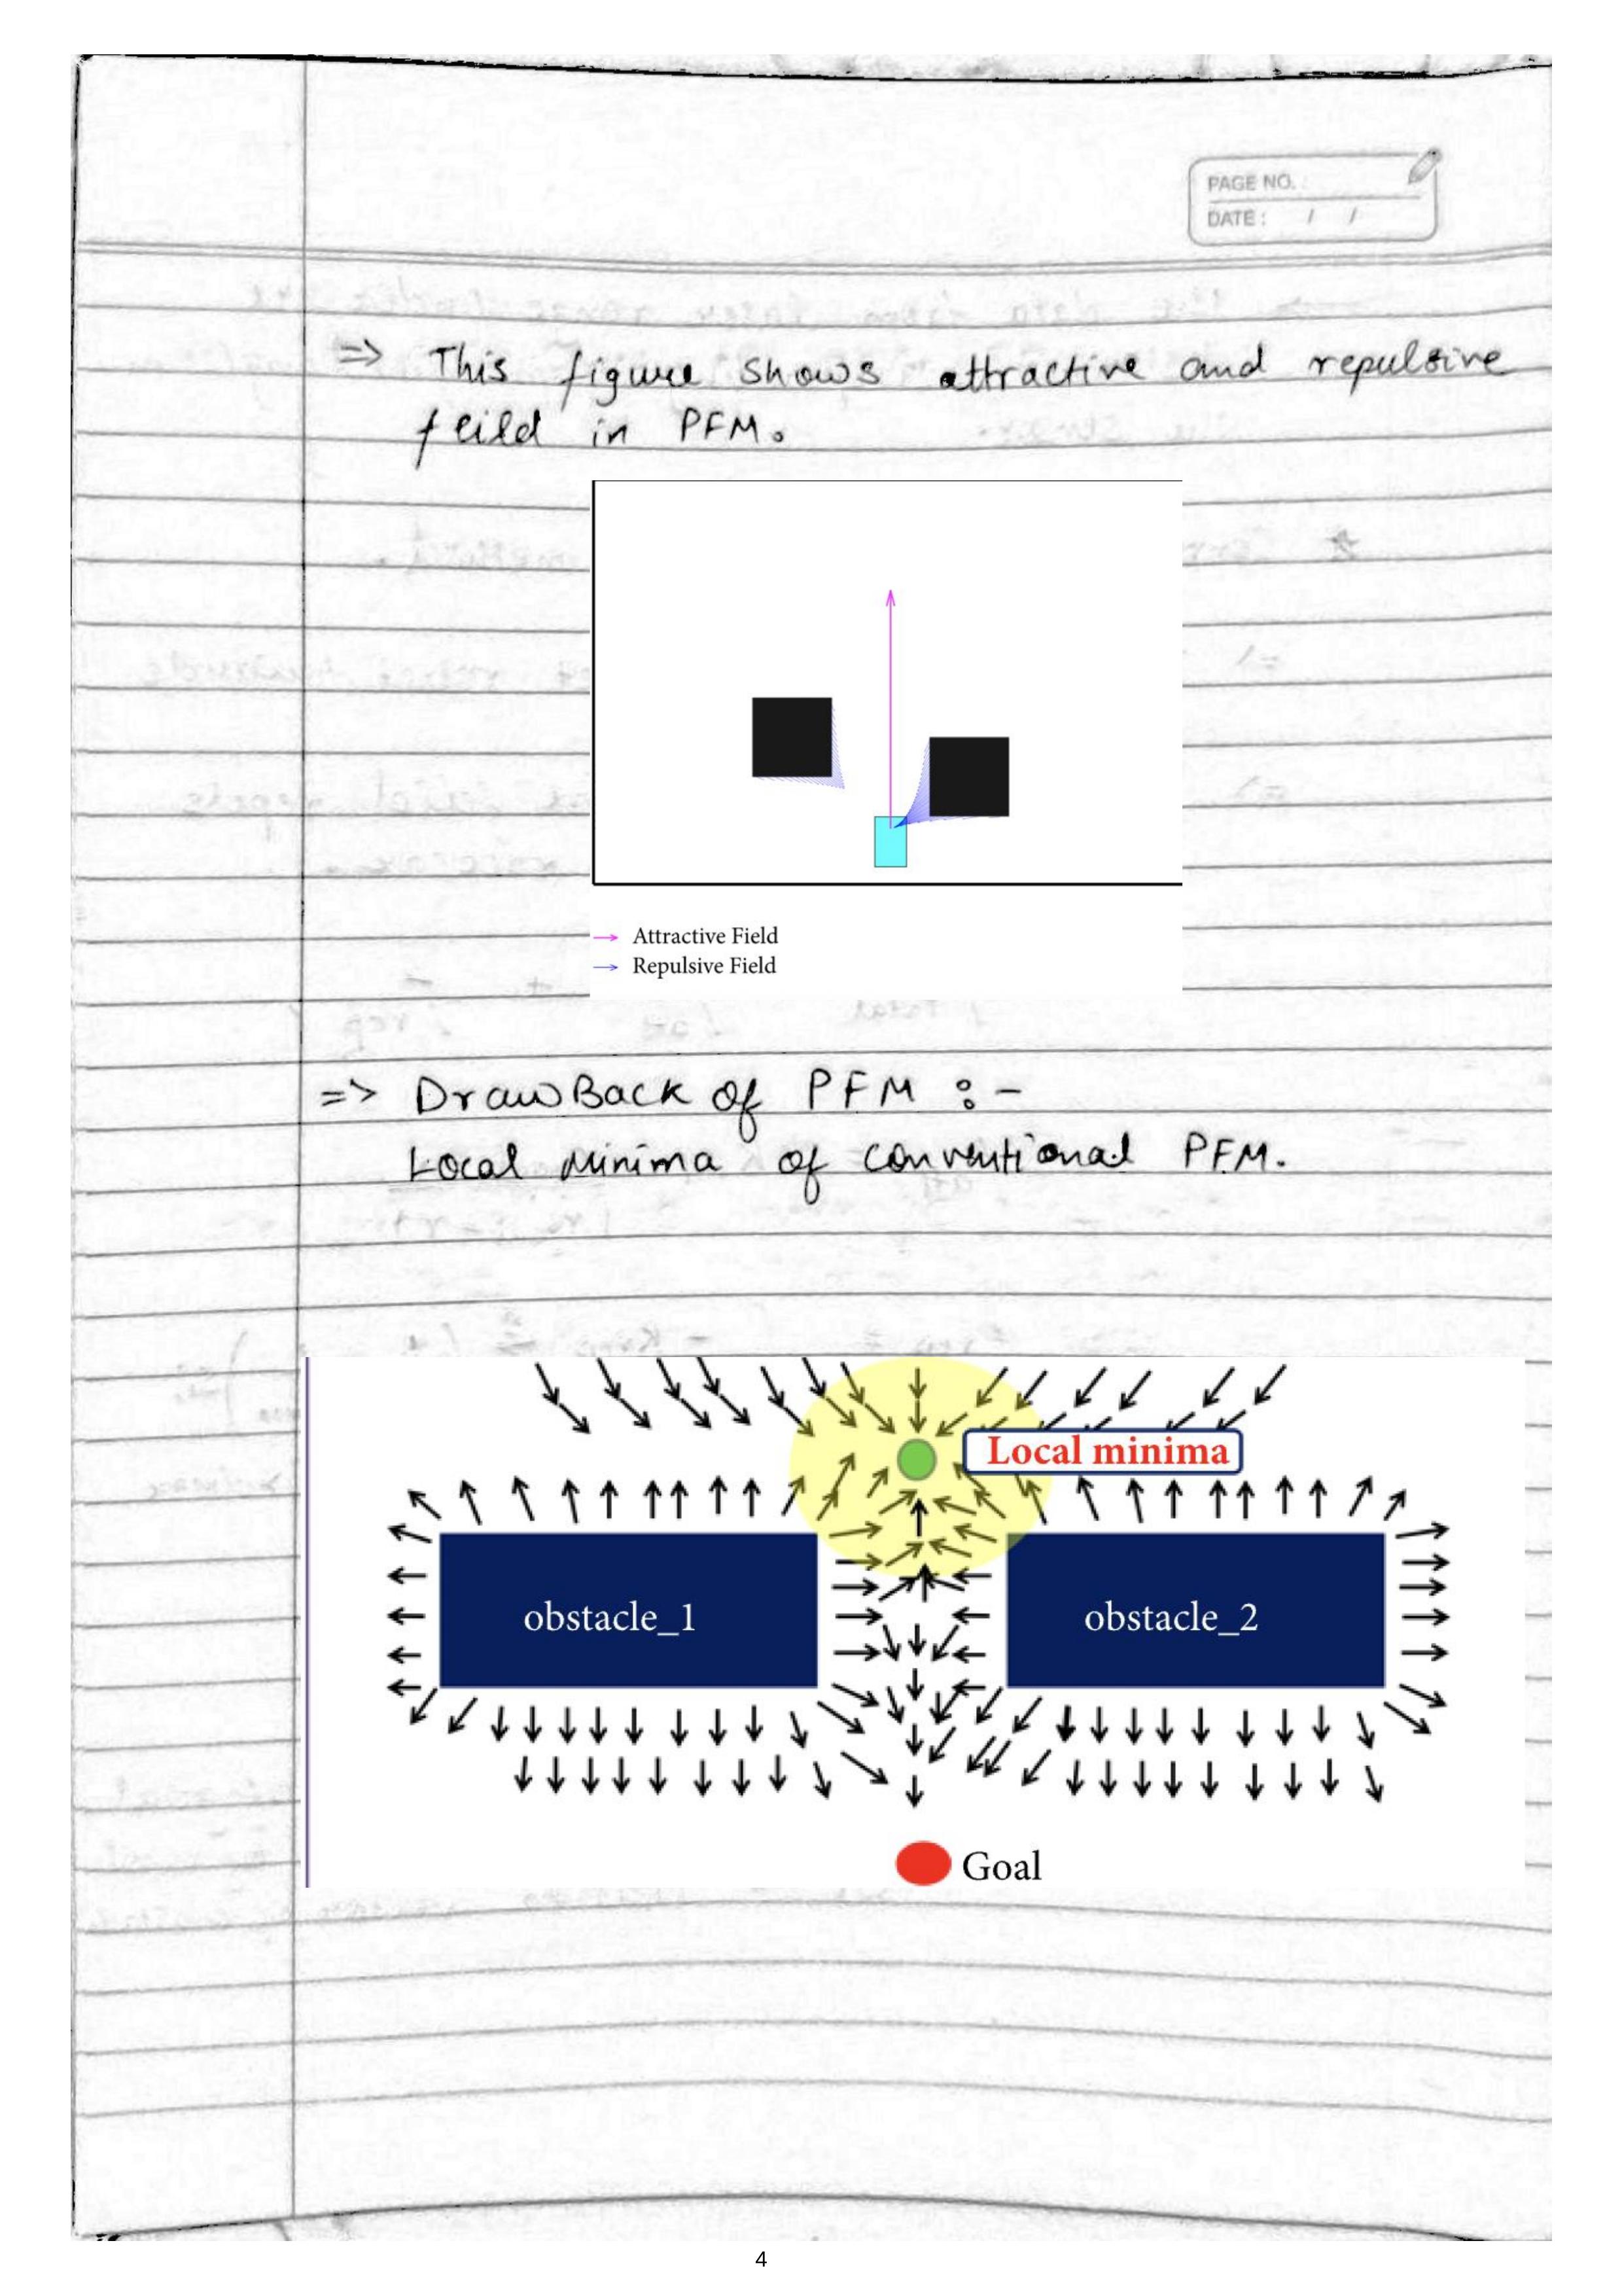 PAGE NO.
DATE : / /
=> This figure shows attractive and repulsive
feild in PFM.
Attractive Field
Repulsive Field
=> DrawBack of PFM :-
Local Minima of conventional PFM.
Local minima
obstacle_1
obstacle_2
Goal
4